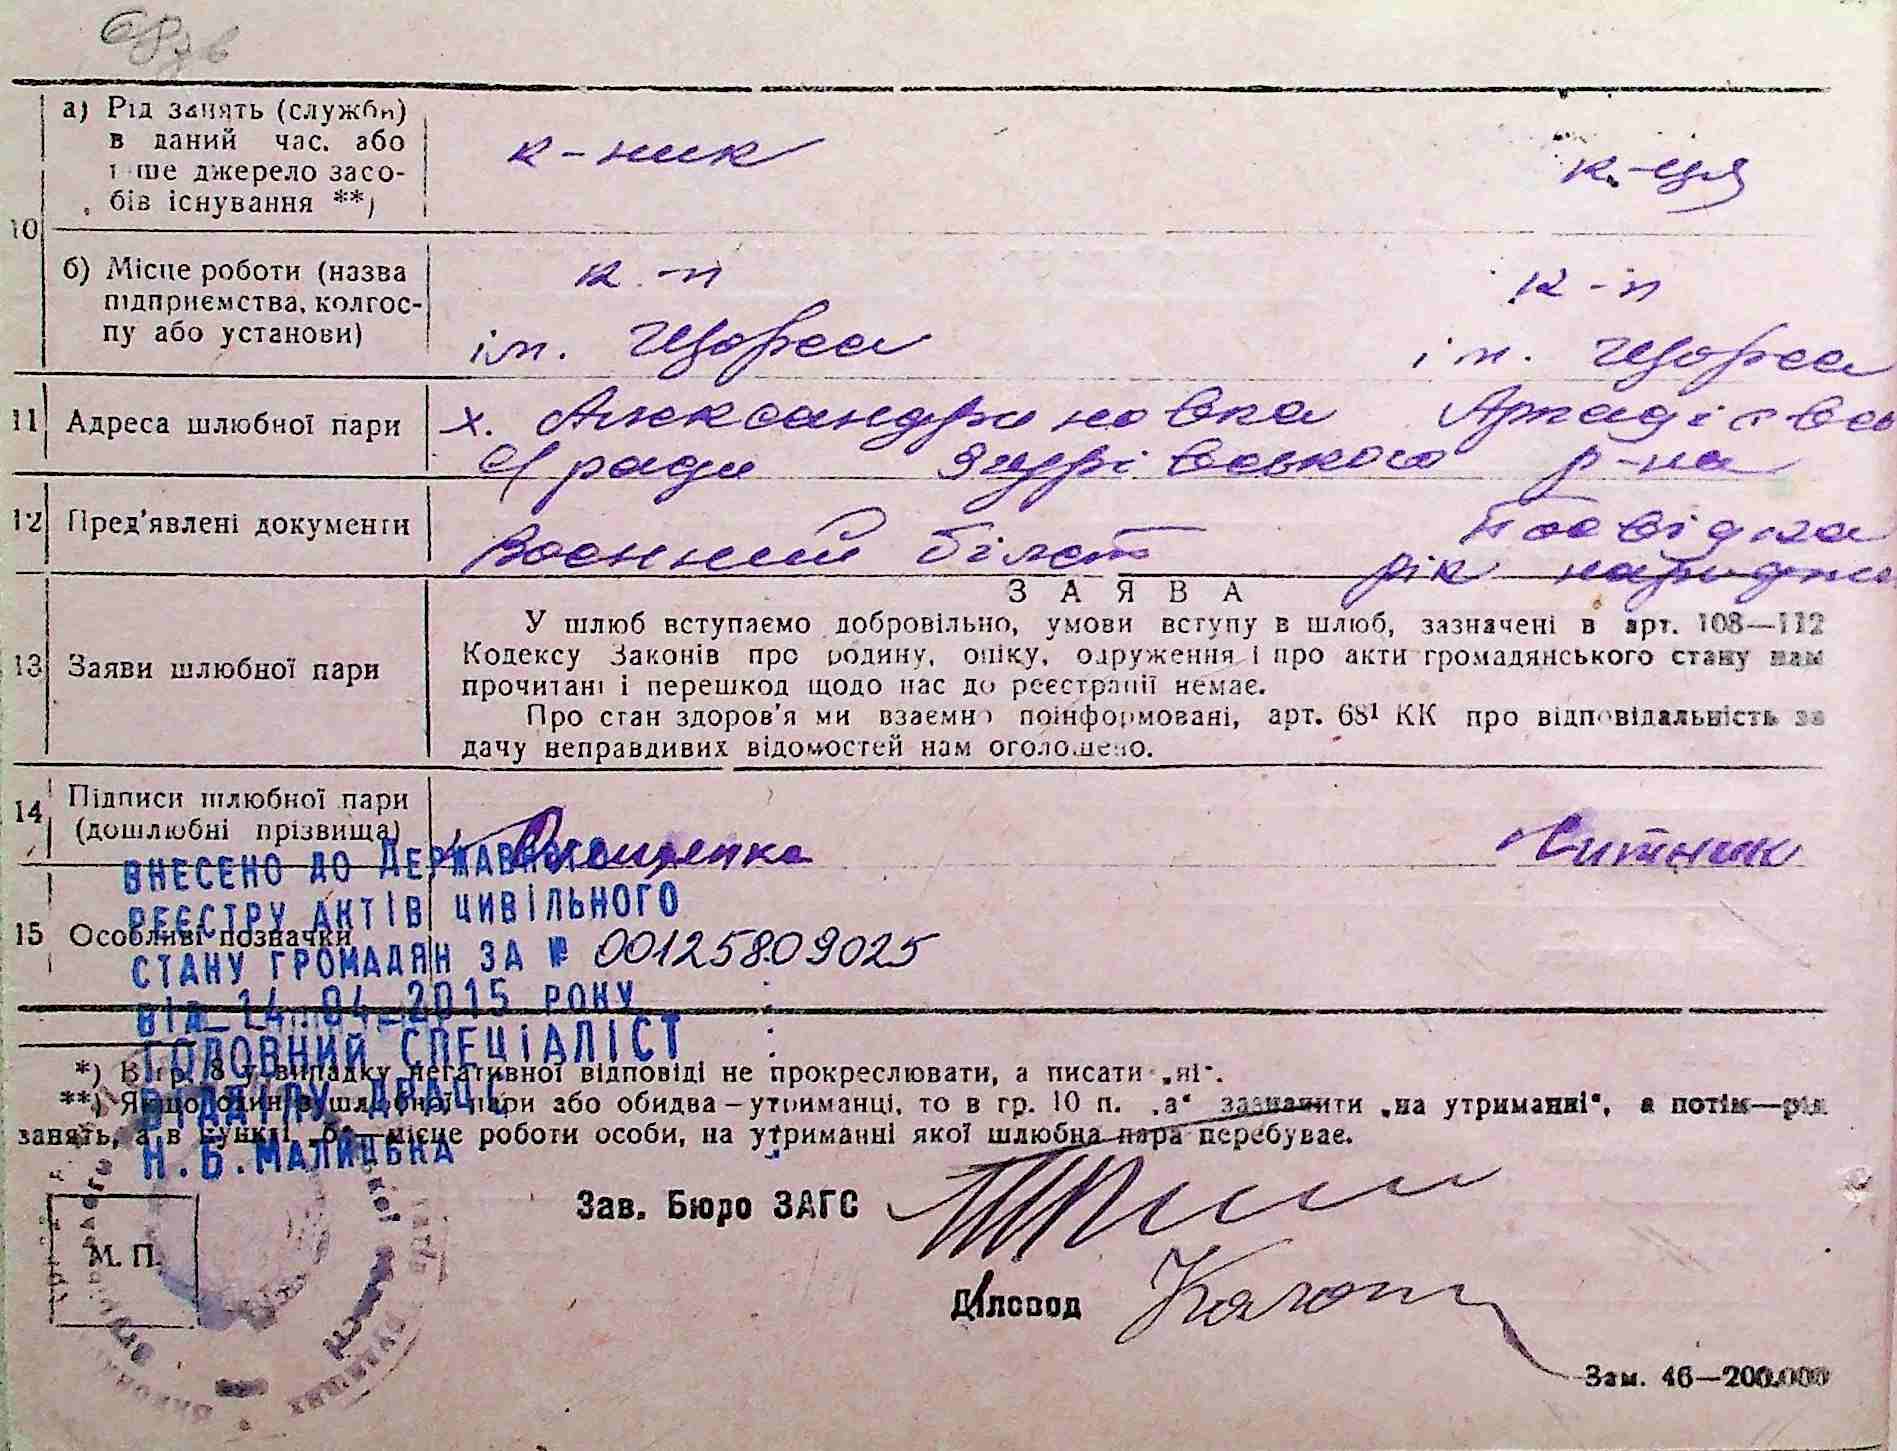 а) Рід занять (служби) в даний час, або інше джерело засо-бів існування **)
к-ник
к-ця
10
б) Місце роботи (назва підприємства, колгос-пу або установи)
к-п
к-п
ім. Щорса
ім. Щорса
11 Адреса шлюбної пари
х. Александриновка
с/ради р-на
12 Пред'явлені документи
Воєнний білет
рік
ЗАЯВА
13 Заяви шлюбної пари
У шлюб вступаємо добровільно, умови вступу в шлюб, зазначені в арт. 108—112
Кодексу Законів про родину, опіку, одруження і про акти громадянського стану нам
прочитані і перешкод щодо нас до реєстрації немає.
Про стан здоров'я ми взаємно поінформовані, арт. 68¹ КК про відповідальність за
дачу неправдивих відомостей нам оголошено.
14 Підписи шлюбної пари
(дошлюбні прізвища)
Ситник
ВНЕСЕНО ДО ДЕРЖАВНОГО
РЕЄСТРУ АКТІВ ЦИВІЛЬНОГО
15 Особливі позначки
СТАНУ ГРОМАДЯН ЗА № 00125809025
ВІД 14.04.2015 РОКУ
ГОЛОВНИЙ СПЕЦІАЛІСТ
*) В гр. 8 у випадку негативної відповіді не прокреслювати, а писати „ні“.
ВІДДІЛУ ДРАЦС
**) Якщо один в шлюбної пари або обидва—утриманці, то в гр. 10 п. „а“ зазначити „на утриманні“, а потім—рід
занять, а в пункті „б“—місце роботи особи, на утриманні якої шлюбна пара перебуває.
Н.Б.МАЛИЦЬКА
Зав. Бюро ЗАГС
М. П.
Діловод
Зам. 46—200.000